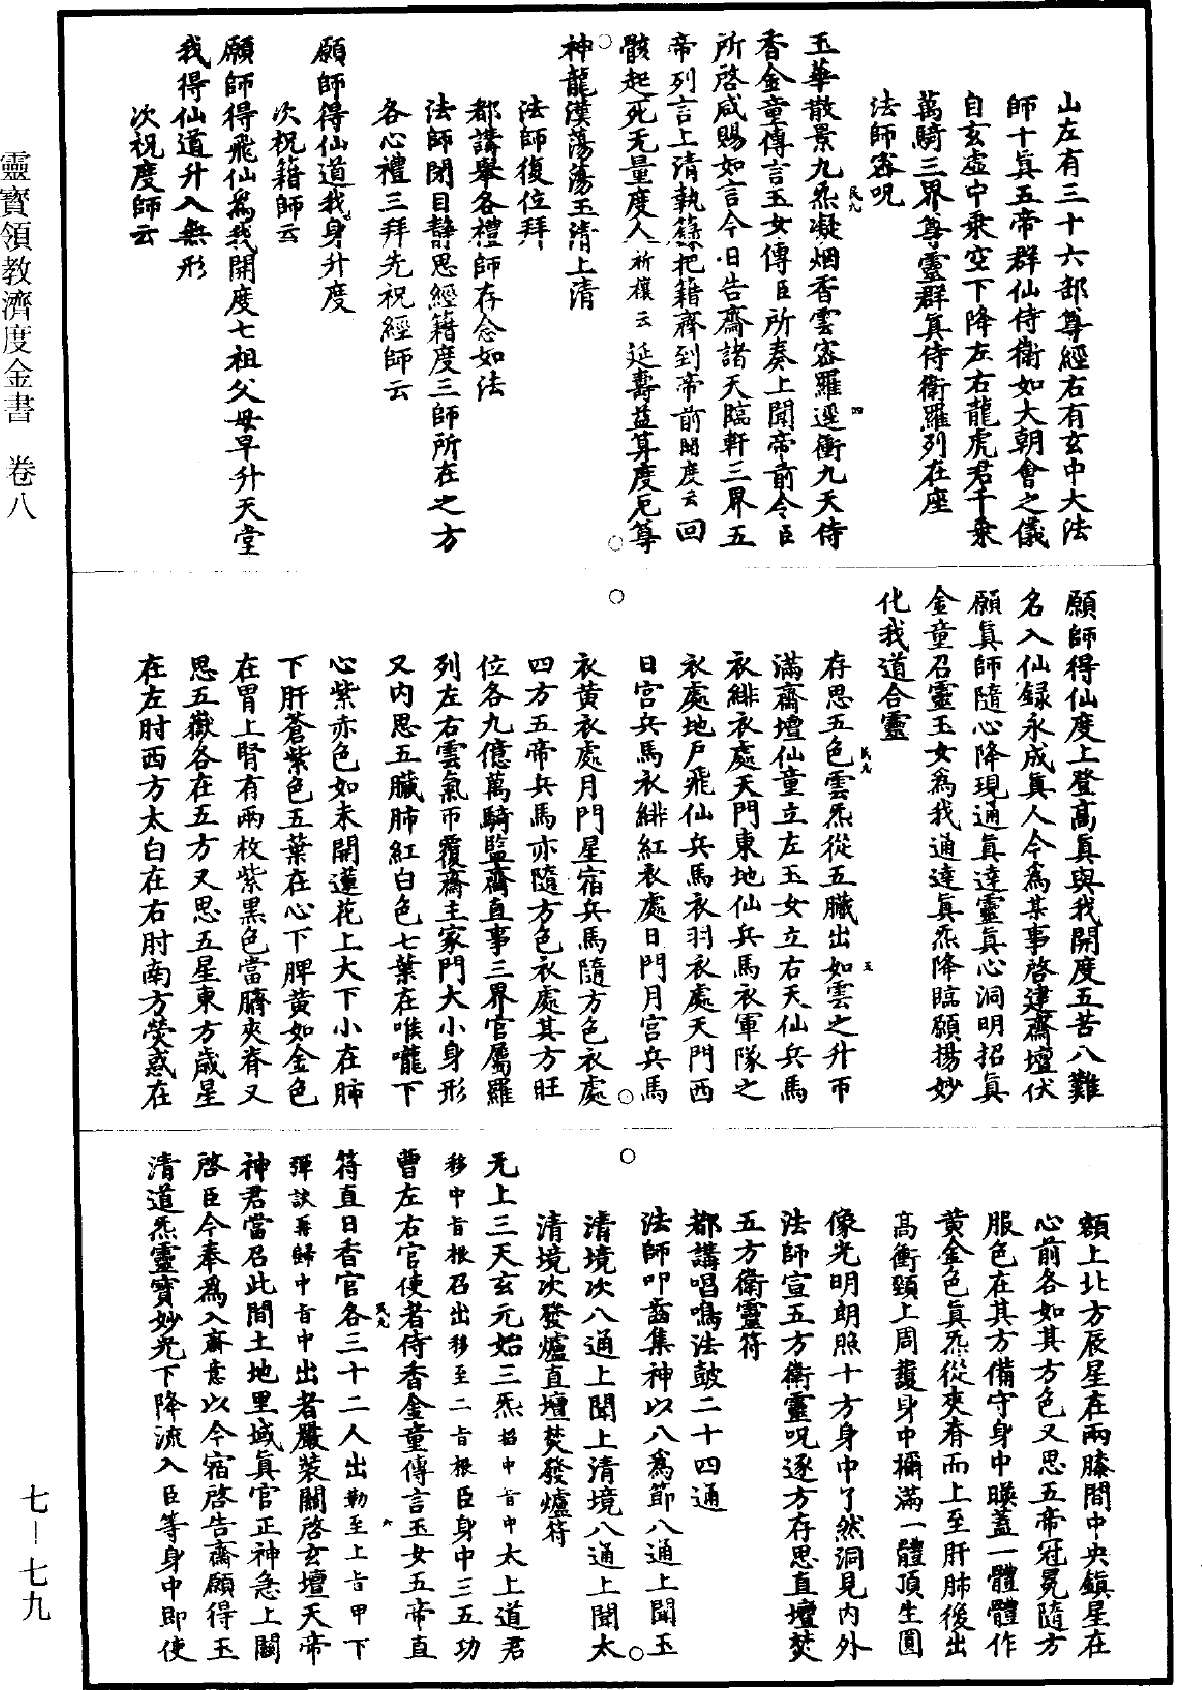 山左有三十六部尊經右有玄中大法
師十真五帝群仙侍衛如大朝會之儀
自玄虛中乘空下降左右龍虎君千乘
萬騎三界尊靈群真侍衛羅列在座
法師密呪
玉華散景九炁凝烟香雲密羅逕衝九天侍
香金童傳言玉女傳臣所奏上聞帝前令臣
所啓咸賜如言今日告齋諸天臨軒三界五
帝列言上清執籙把籍齊到帝前開度云回
骸起死无量度人祈禳云延壽益算度厄尊
神龍漢蕩蕩玉清上清
法師復位拜
都講舉各禮師存念如法
法師閉目静思經籍度三師所在之方
各心禮三拜先祝經師云
願師得仙道我身升度
次祝籍師云
願師得飛仙爲我開度七祖父母早升天堂
我得仙道升入無形
次祝度師云
願師得仙度上登高真與我開度五苦八難
名入仙録永成真人今爲某事啓建齋壇伏
願真師隨心降現通真達靈真心洞明招真
金童召靈玉女爲我通達真炁降臨願揚妙
化我道合靈
存思五色雲炁從五臟出如雲之升帀
滿齋壇仙童立左玉女立右天仙兵馬
衣緋衣處天門東地仙兵馬衣軍隊之
衣處地戶飛仙兵馬衣羽衣處天門西
日宮兵馬衣緋紅衣處日門月宮兵馬
衣黄衣處月門星宿兵馬隨方色衣處
四方五帝兵馬亦隨方色衣處其方旺
位各九億萬騎監齋直事三界官屬羅
列左右雲氣帀覆齋主家門大小身形
又内思五臟肺紅白色七葉在喉嚨下
心紫赤色如未開蓮花上大下小在肺
下肝蒼紫色五葉在心下脾黄如金色
在胃上腎有兩枚紫黑色當臍夾脊又
思五嶽各在五方又思五星東方歲星
在左肘西方太白在右肘南方熒惑在
額上北方辰星在兩膝間中央鎮星在
心前各如其方色又思五帝冠冕隨方
服色在其方備守身中暎蓋一體體作
黄金色真炁從夾脊而上至肝肺後出
高衝頸上周護身中禰滿一體頂生圓
像光明朗照十方身中了然洞見内外
法師宣五方衛靈呪逐方存思直壇焚
五方衛靈符
都講唱鳴法鼓二十四通
法師叩齒集神以八爲節八通上聞玉
清境次八通上聞上清境八通上聞太
清境次發爐直壇焚發爐符
无上三天玄元始三炁招中旨中太上道君
移中旨根召出移至二旨根臣身中三五功
曹左右官使者侍香金童傳言玉女五帝直
符直日香官各三十二人出勒至上旨甲下
彈訣再歸中旨中出者嚴裝關啓玄壇天帝
神君當召此間土地里域真官正神急上關
啓臣今奉爲入齋意以今宿啓告齋願得玉
清道炁靈寶妙光下降流入臣等身中即使
民九
四
民九
五
民九
六
靈寶領教濟度金書　卷八
七-七九